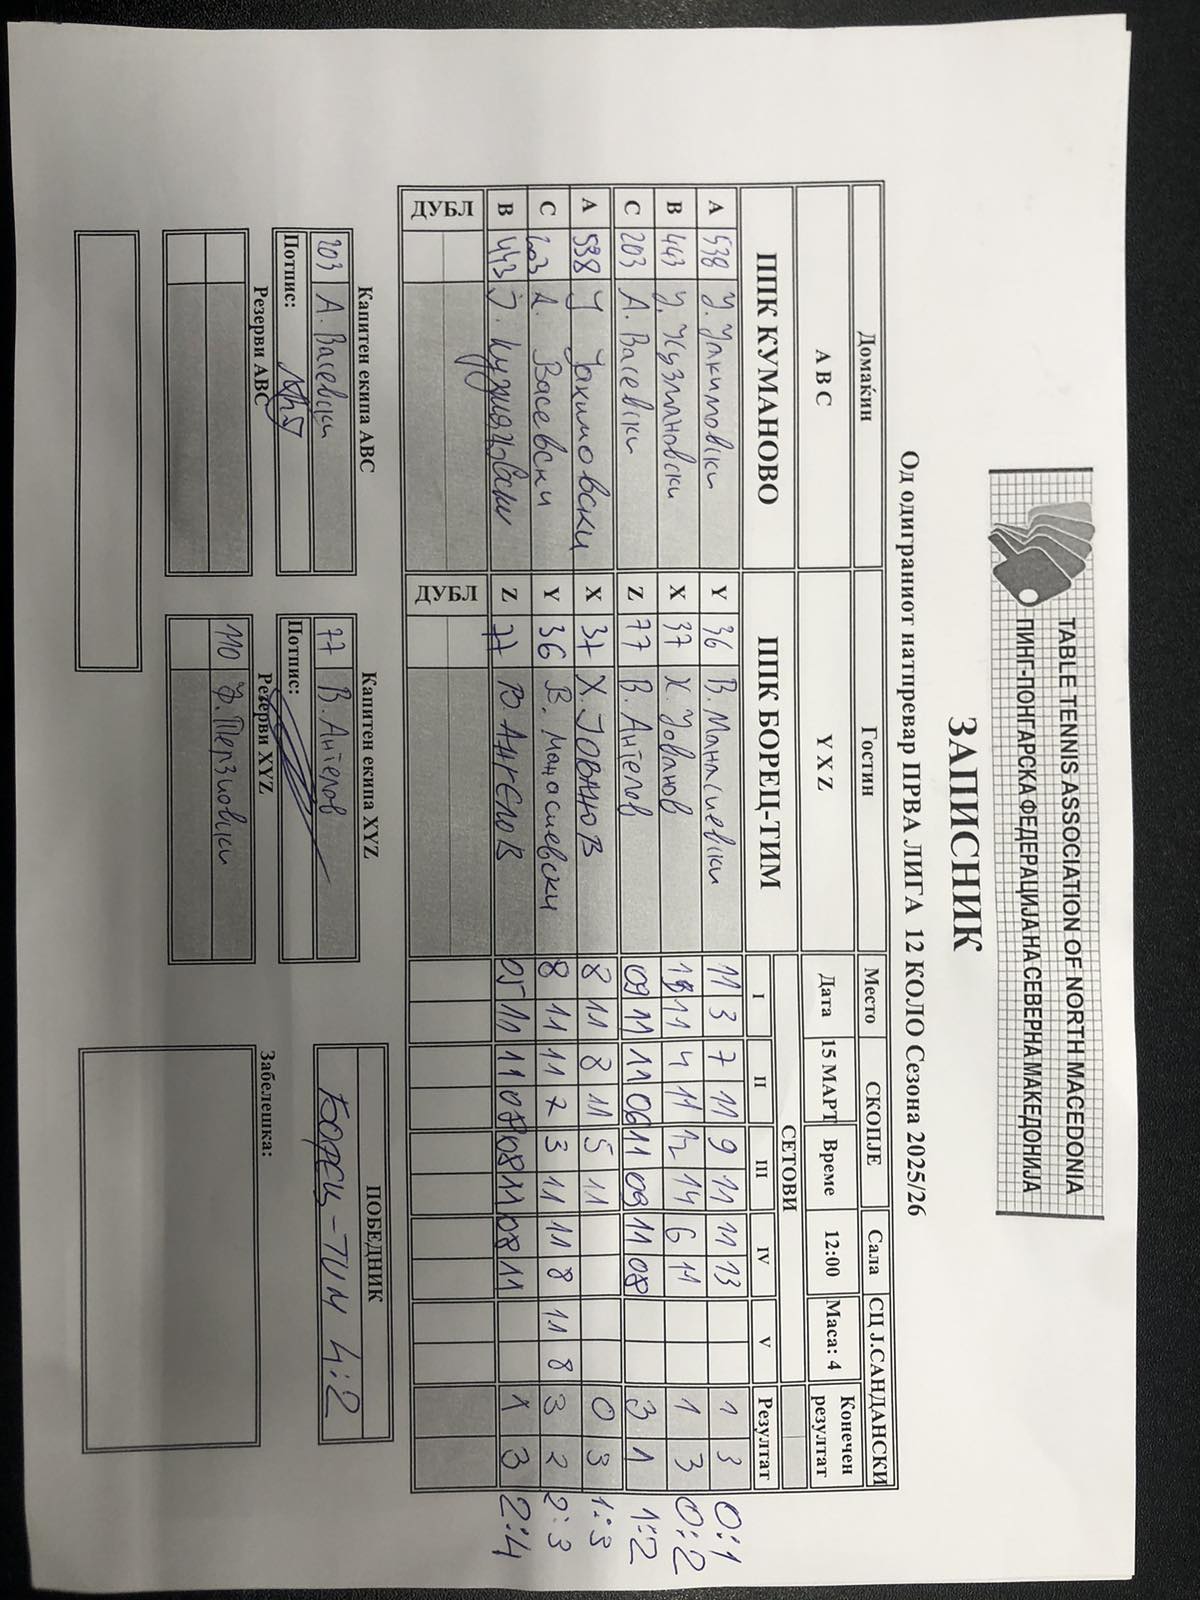 TABLE TENNIS ASSOCIATION OF NORTH MACEDONIA
ПИНГ-ПОНГАРСКА ФЕДЕРАЦИЈА НА СЕВЕРНА МАКЕДОНИЈА
ЗАПИСНИК
Од одиграниот натпревар ПРВА ЛИГА 12 КОЛО Сезона 2025/26
Домаќин Гостин Место СКОПЈЕ Сала СЦ Ј.САНДАНСКИ
A B C Y X Z Дата 15 МАРТ Време 12:00 Маса: 4 Конечен резултат
ППК КУМАНОВО ППК БОРЕЦ-ТИМ СЕТОВИ
I II III IV V Резултат
A 538 У. Јакимовски Y 36 В. Манасиевски 11 3 7 11 9 11 11 13 1 3 0:1
B 443 Ј. Кузмановски X 37 Х. Јованов 11 4 11 12 14 6 11 1 3 0:2
C 203 А. Васевски Z 77 В. Ангелов 09 11 11 06 11 09 11 08 3 1 1:2
A 538 У Јакимовски X 37 Х. ЈОВАНОВ 8 11 8 11 5 11 0 3 1:3
C 203 А. Васевски Y 36 В. Манасиевски 8 11 11 7 3 11 11 8 11 8 3 2 2:3
B 443 Ј. Кузмановски Z 77 В АНГЕЛОВ 05 11 11 08 08 11 08 11 1 3 2:4
ДУБЛ ДУБЛ
Капитен екипа ABC Капитен екипа XYZ ПОБЕДНИК
203 А. Васевски 77 В. Ангелов БОРЕЦ-ТИМ 4:2
Потпис: Потпис:
Резерви ABC Резерви XYZ Забелешка:
110 Ф. Терзиовски